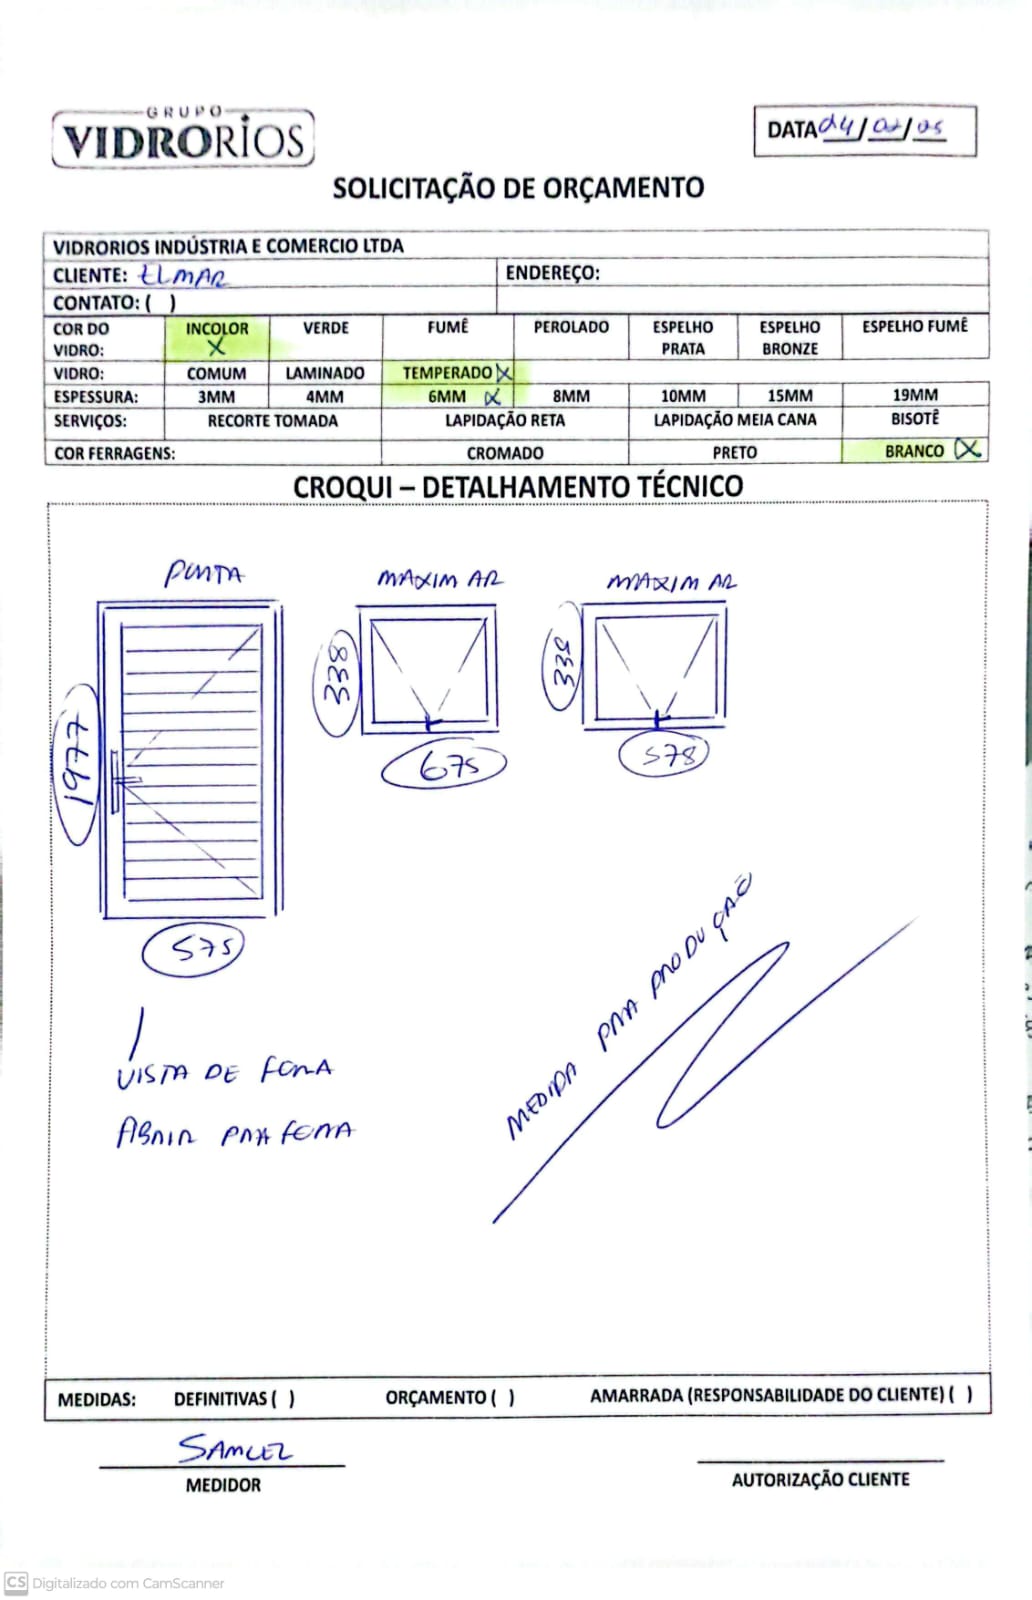 GRUPO
VIDRORIOS
DATA 04/02/25
SOLICITAÇÃO DE ORÇAMENTO
VIDRORIOS INDÚSTRIA E COMERCIO LTDA
CLIENTE: ELMAR ENDEREÇO:
CONTATO: ( )
COR DO VIDRO: INCOLOR X VERDE FUMÊ PEROLADO ESPELHO PRATA ESPELHO BRONZE ESPELHO FUMÊ
VIDRO: COMUM LAMINADO TEMPERADO X
ESPESSURA: 3MM 4MM 6MM X 8MM 10MM 15MM 19MM
SERVIÇOS: RECORTE TOMADA LAPIDAÇÃO RETA LAPIDAÇÃO MEIA CANA BISOTÊ
COR FERRAGENS: CROMADO PRETO BRANCO X
CROQUI – DETALHAMENTO TÉCNICO
PORTA MAXIM AR MAXIM AR
338 339
1977
675 578
575
MEDIDA PARA PRODUÇÃO
VISTA DE FORA
ABRIR PRA FORA
MEDIDAS: DEFINITIVAS ( ) ORÇAMENTO ( ) AMARRADA (RESPONSABILIDADE DO CLIENTE) ( )
SAMUEL
MEDIDOR AUTORIZAÇÃO CLIENTE
CS Digitalizado com CamScanner